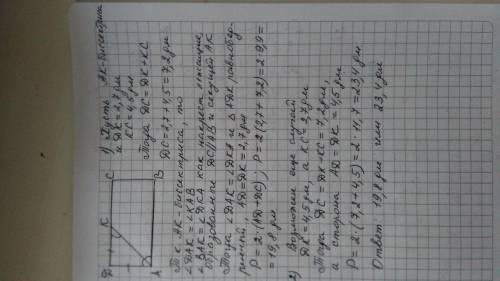 D K C
A B
1) Пусть АК-биссектриса
и DK = 2,7 дм
KC = 4,5 дм
Тогда DC = DK + KC
DC = 2,7 + 4,5 = 7,2 дм.
Т.к. АК - биссектриса, то
∠DAK = ∠KAB
∠BAK = ∠DKA как накрест лежащие,
образованные DC||AB и секущей АК
Тогда ∠DAK = ∠DKA и △ADK равнобед-
ренный, AD = DK = 2,7 дм
P = 2·(AD+DC); P = 2(2,7+7,2) = 2·9,9 =
= 19,8 дм
2) Возможен еще случай
DK = 4,5 дм, а KC = 2,7 дм
Тогда DC = DK + KC = 7,2 дм,
а сторона AD = DK = 4,5 дм
P = 2·(7,2+4,5) = 2·11,7 = 23,4 дм
Ответ: 19,8 дм или 23,4 дм